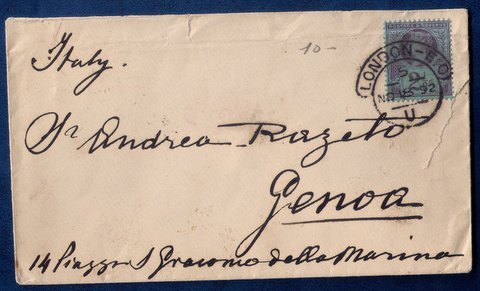 10-
POSTAGE & REVENUE
LONDON-E.C
5
NO 16 92
U
Italy.
Sr. Andrea Razeto
Genoa
14 Piazza S Giacomo della Marina